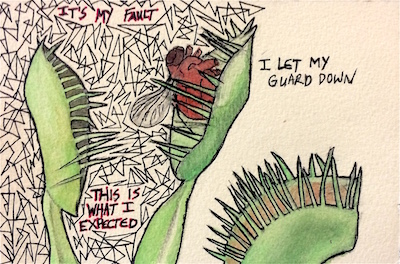 IT'S MY FAULT
I LET MY
GUARD DOWN
THIS IS
WHAT I
EXPECTED